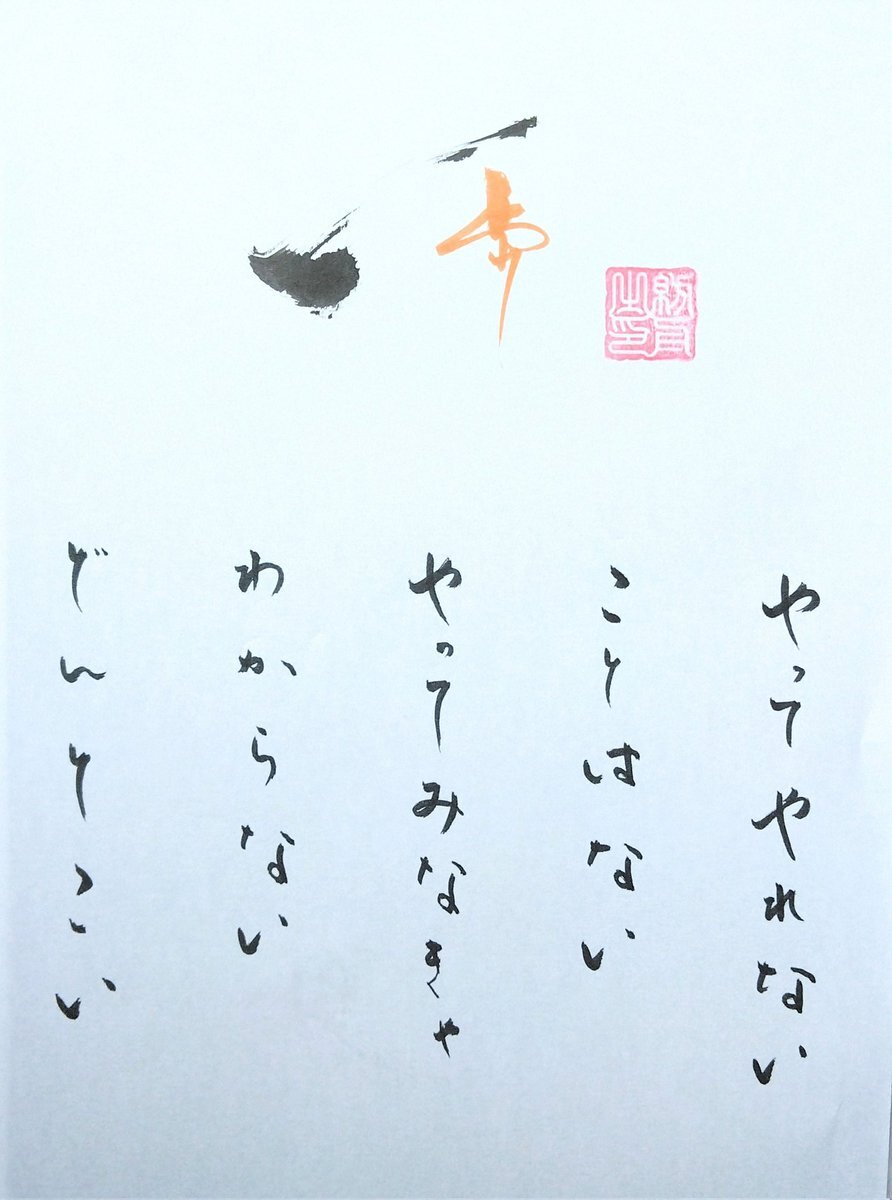 やってやれない
ことはない
やってみなきゃ
わからない
どんとこい